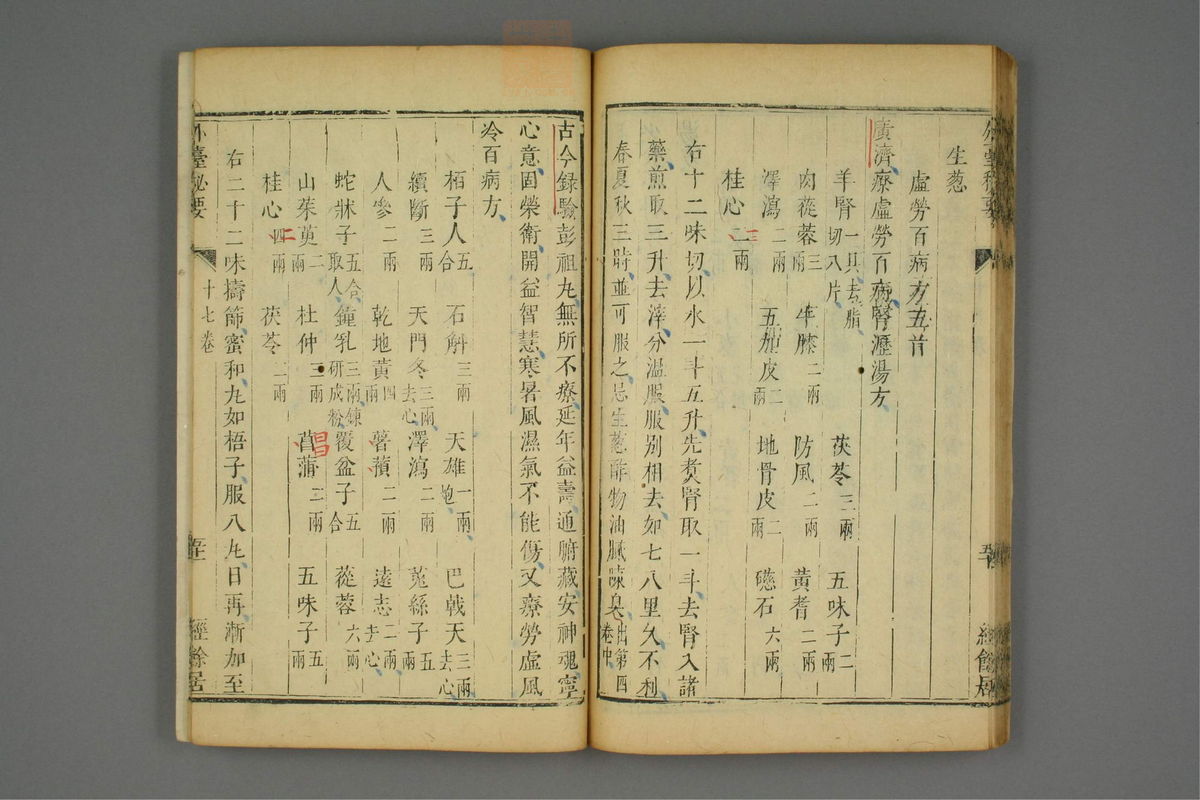 外臺秘要
經餘居
生葱
虛勞百病方五首
廣濟療虛勞百病腎瀝湯方
羊腎一具去脂切八片 茯苓三兩 五味子二兩
肉蓯蓉三兩 牛膝二兩 防風二兩 黃耆二兩
澤瀉二兩 五加皮二兩 地骨皮二兩 磁石六兩
桂心二兩 三
右十二味切以水一斗五升先煑腎取一斗去腎入諸
藥煎取三升去滓分溫服服別相去如七八里久不利
春夏秋三時並可服之忌生葱酢物油膩陳臭出第四卷中
古今録驗彭祖丸無所不療延年益壽通腑藏安神魂寧
心意固榮衛開益智慧寒暑風濕氣不能傷又療勞虛風
冷百病方
栢子人五合 石斛三兩 天雄一兩炮 巴戟天三兩去心
續斷三兩 天門冬三兩去心 澤瀉二兩 菟絲子五兩
人參二兩 乾地黃四兩 薯蕷二兩 遠志二兩去心
蛇牀子五合取人 鐘乳三兩鍊研成粉 覆盆子五合 蓯蓉六兩
山茱萸二兩 杜仲三兩 菖蒲二兩 五味子五兩 昌
桂心四兩 二 茯苓二兩
右二十二味擣篩蜜和丸如梧子服八丸日再漸加至
外臺秘要
十七卷
經餘居